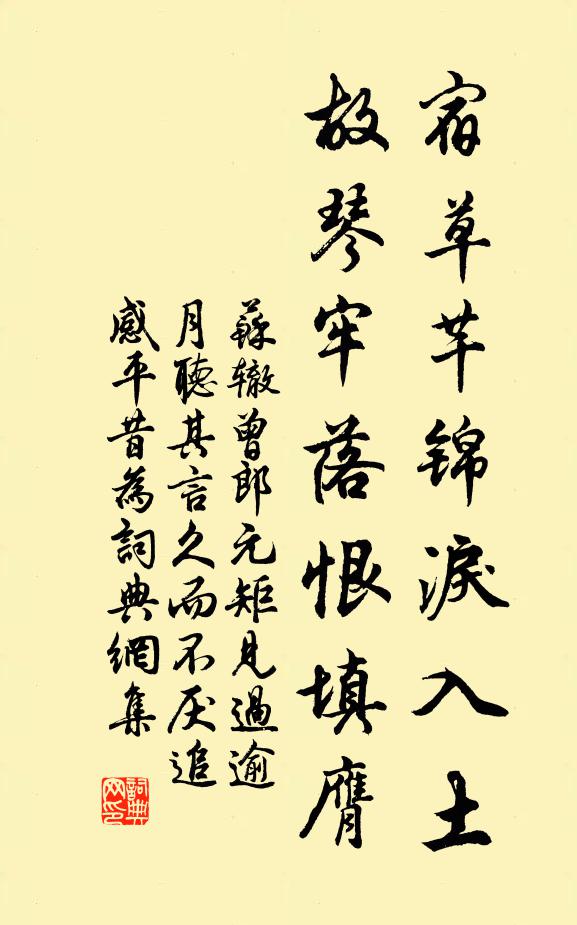 宿草芊锦淚入土
故琴牢落恨填膺
蘇辙曾郎元矩見過逾
月聽其言久而不厌追
感平昔為詞典網集
詞典网印